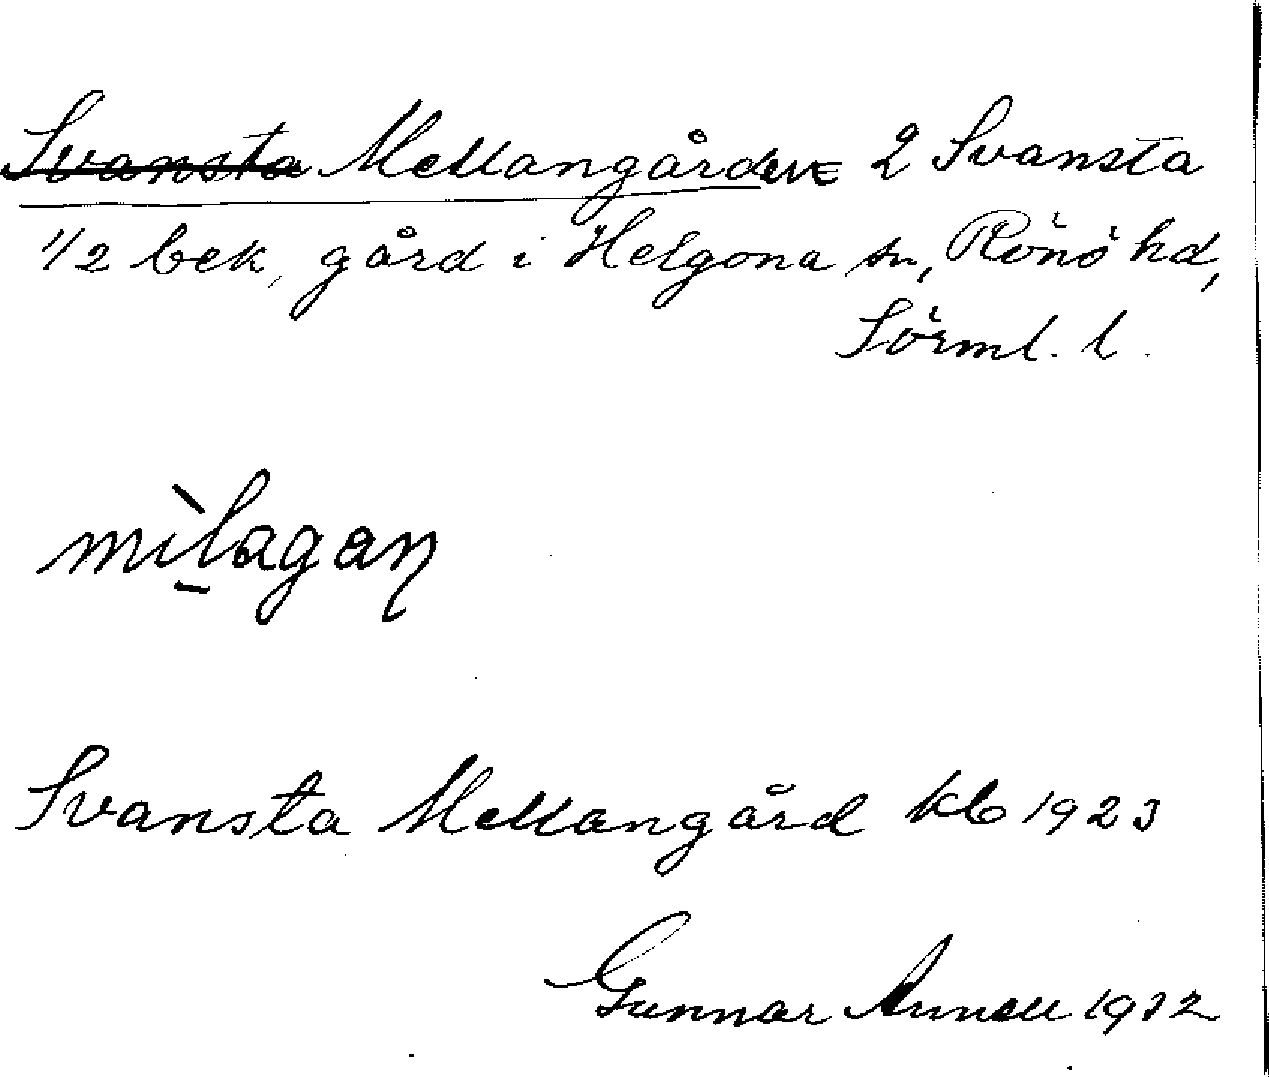 Svansta Mellangården 2 Svansta
1/2 bek, gård i Helgona sn, Rönö hd,
Sörml. l.
mìlagaɳ
Svansta Mellangård kb 1923
Gunnar Annell 1932